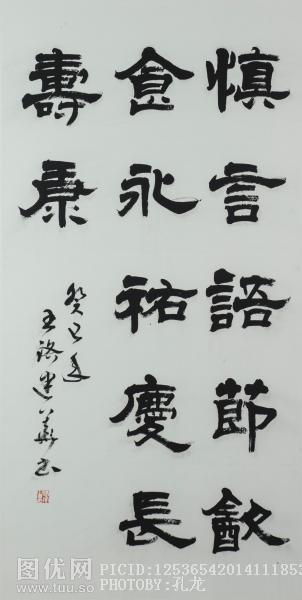 慎言語節飲
食永祐慶長
壽康
癸巳年
建華書
图优网
www.tuu.so
PICID:12536542014111853
PHOTOBY:孔龙